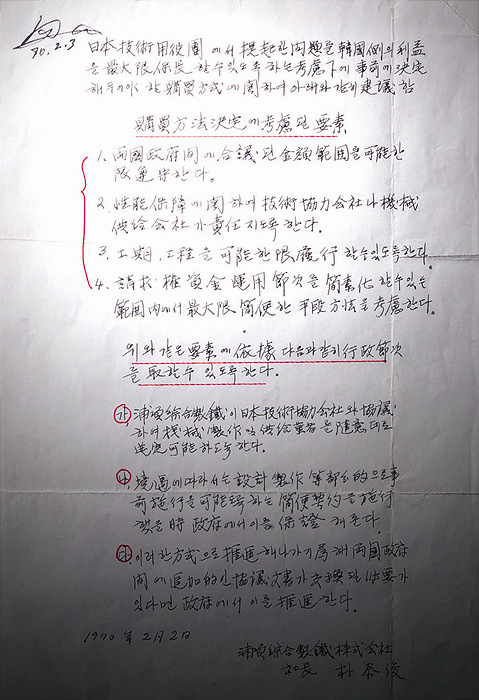 70. 2. 3
日本技術用役團에서 提起한 問題를 韓國側의 利益
을 最大限 保長할수있도록 하는 考慮下에 事前에 決定
해두어야 할 購買方式에 關하여 아래와 같이 建議함
購買方法決定에 考慮될 要素
1. 両國政府間에 合議된 金額範囲을 可能한
限 遵守한다.
2. 性能保障에 關하여 技術協力会社나 機械
供給会社가 責任지도록 한다.
3. 工期, 工程을 可能한 限 履行할수있도록 한다.
4. 請求權資金 運用節次를 簡素化 할수있는
範囲内에서 最大限 簡便한 手段方法을 考慮한다.
위와같은 要素에 依據 다음과같이 行政節次
를 取할수 있도록 한다.
가) 浦項綜合製鐵이 日本技術協力会社와 協議
하여 機械製作 및 供給業者을 隨意대로
選定 可能하도록한다.
나) 境遇에 따라서는 設計 製作 等 部分的으로 事
前施行을 可能토록 하는 簡便契約을 施行
했을時 政府에서 이를 保證해준다.
다) 이러한 方式으로 推進해나가기 爲해 両國政府
間에 追加的인 協議文書가 交換될 必要가
있다면 政府에서 이를 推進한다.
1970年 2月 2日
浦項綜合製鐵株式会社
社長 朴泰俊